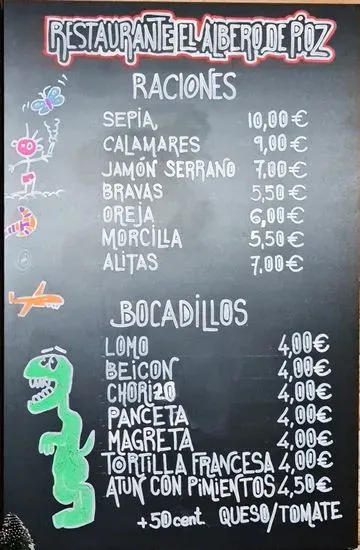 RESTAURANTE EL ALBERO DE PIOZ
RACIONES
SEPIA 10,00€
CALAMARES 9,00€
JAMÓN SERRANO 7,00€
BRAVAS 5,50€
OREJA 6,00€
MORCILLA 5,50€
ALITAS 7,00€
BOCADILLOS
LOMO 4,00€
BEICON 4,00€
CHORIZO 4,00€
PANCETA 4,00€
MAGRETA 4,00€
TORTILLA FRANCESA 4,00€
ATUN CON PIMIENTOS 4,50€
+50 cent. QUESO/TOMATE